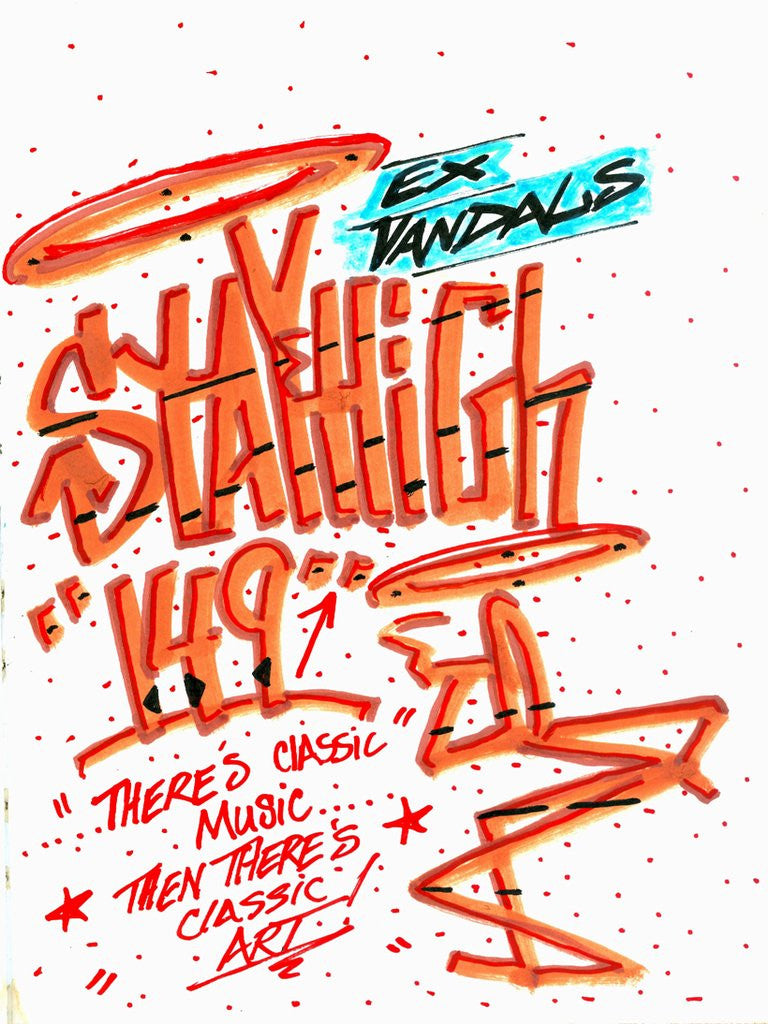 EX
VANDALS
STAYHiGh
"149"
"THERE'S CLASSIC"
MUSIC....
THEN THERE'S
CLASSIC
ART!